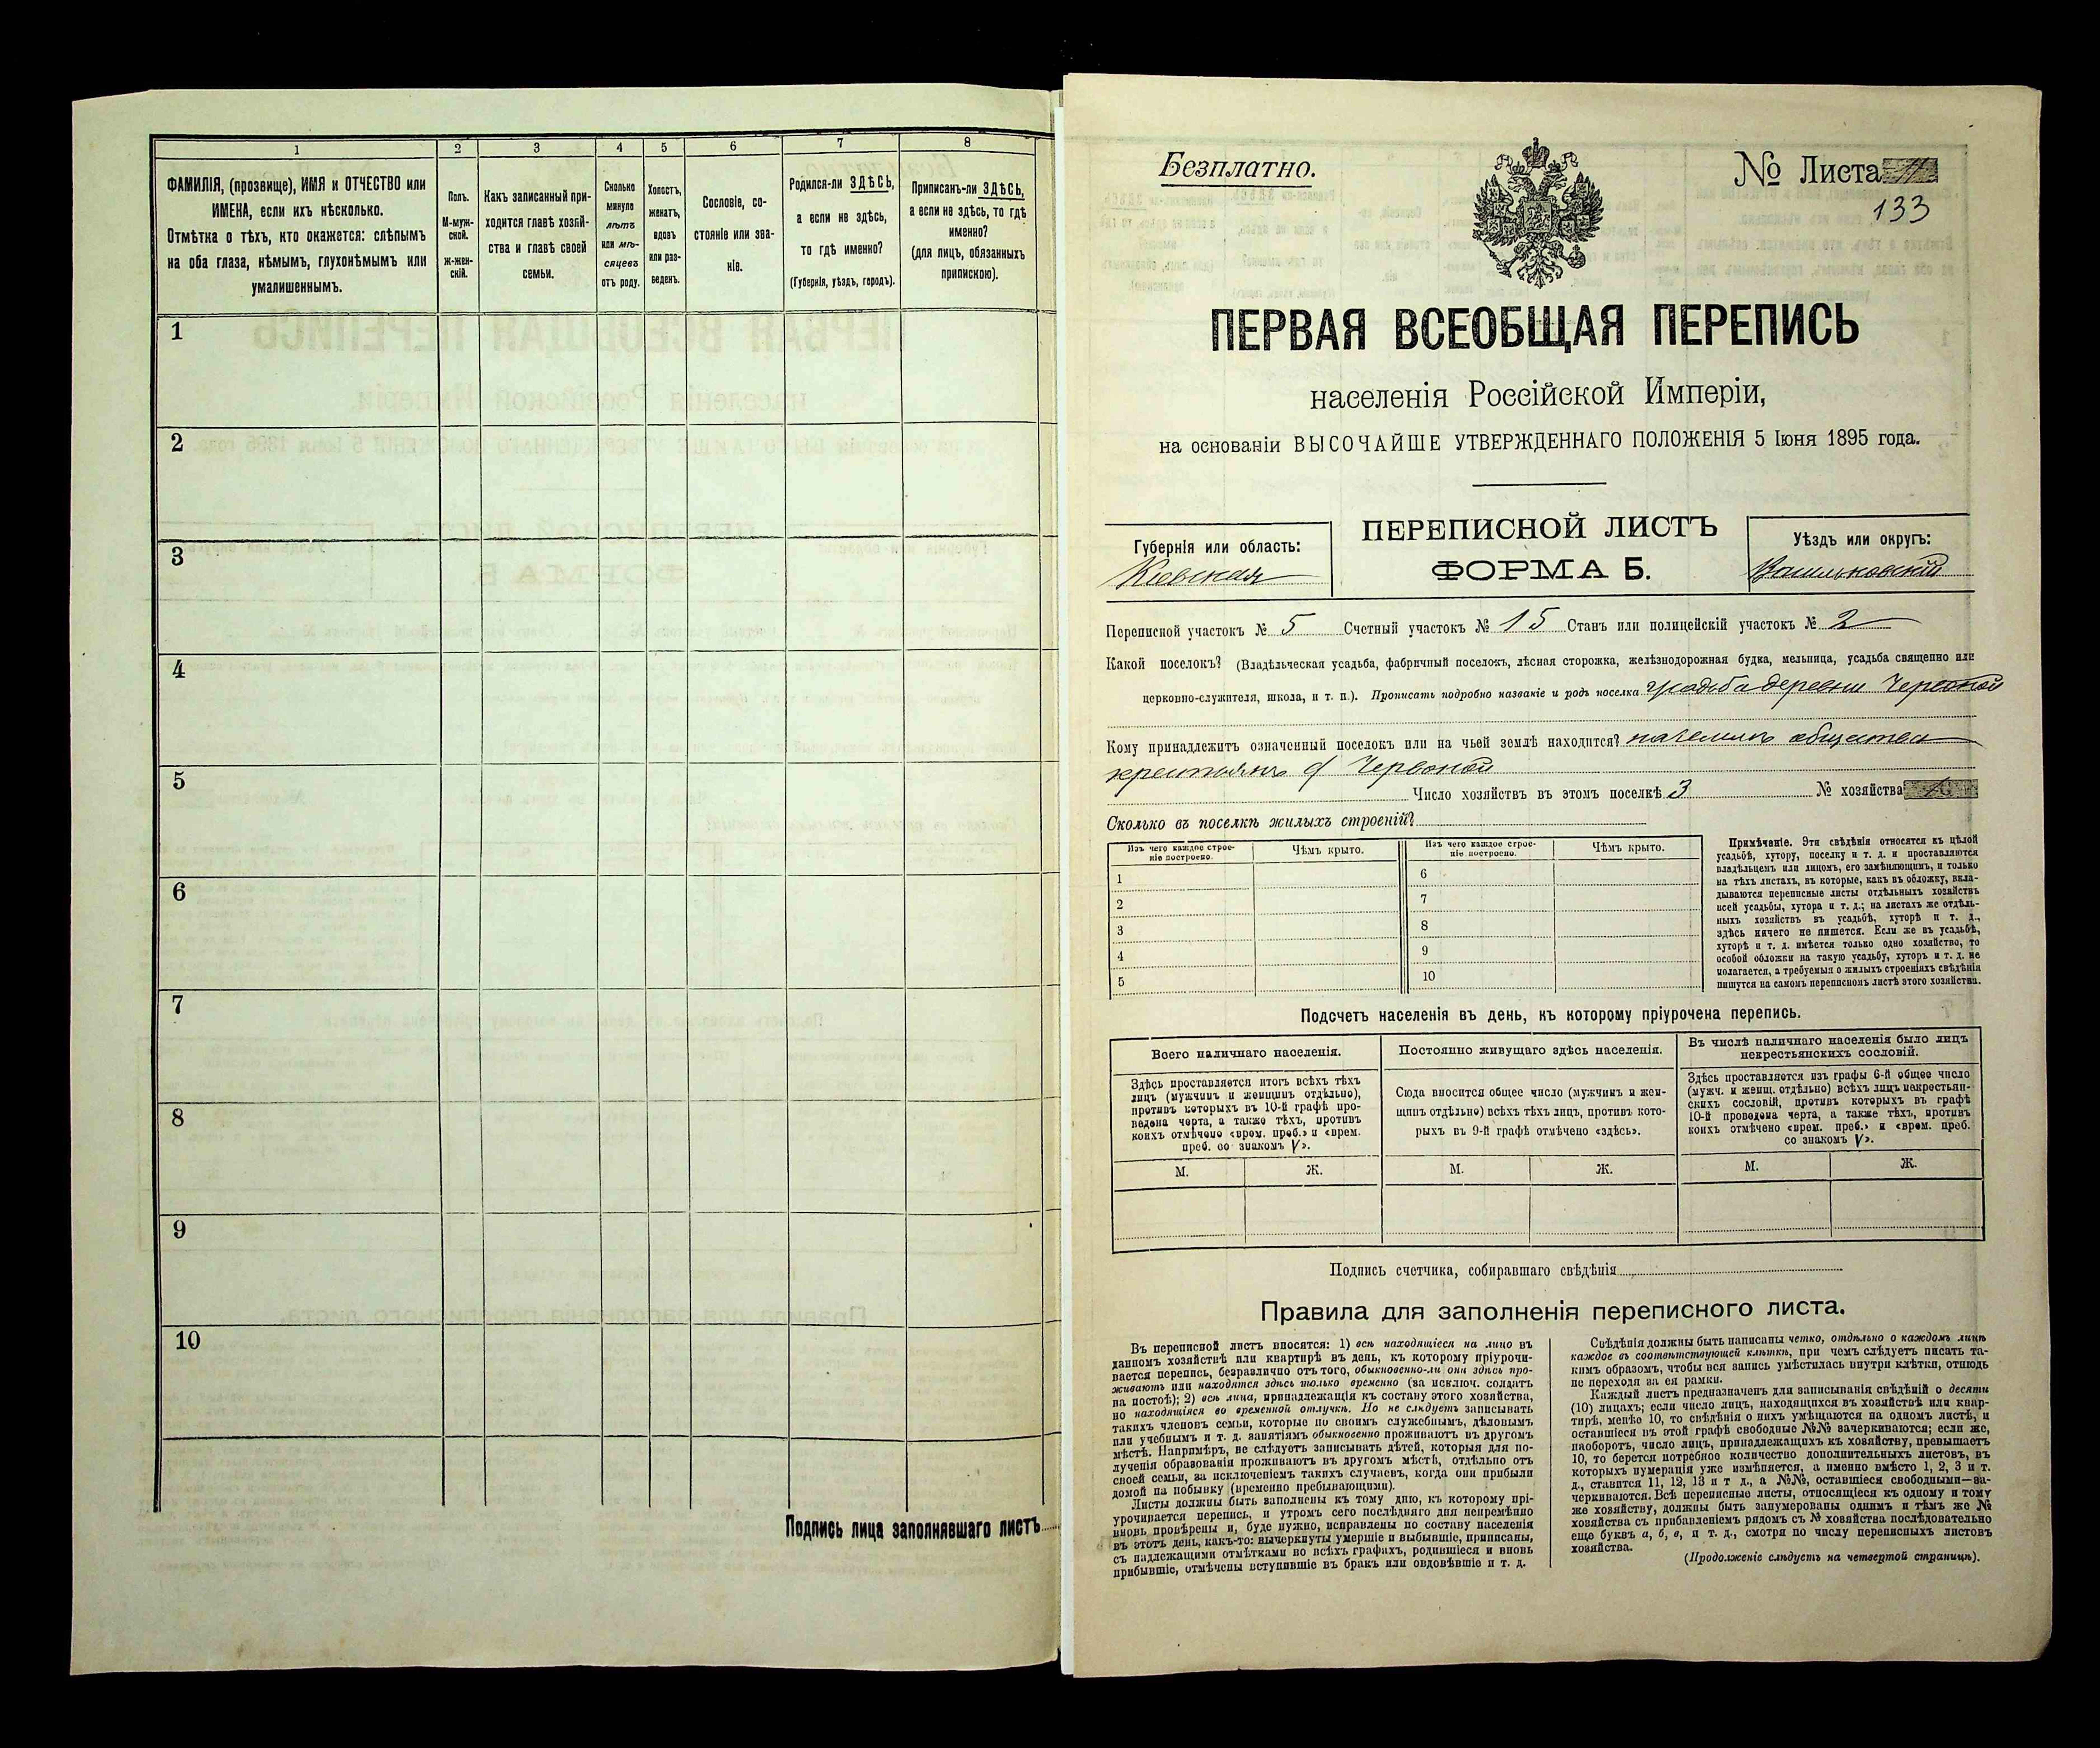 1
2
3
4
5
6
7
8
ФАМИЛІЯ, (прозвище), ИМЯ и ОТЧЕСТВО или
ИМЕНА, если ихъ нѣсколько.
Отмѣтка о тѣхъ, кто окажется: слѣпымъ
на оба глаза, нѣмымъ, глухонѣмымъ или
умалишеннымъ.
Полъ.
М-муж-
ской.
ж-жен-
скій.
Какъ записанный при-
ходится главѣ хозяй-
ства и главѣ своей
семьи.
Сколько
минуло
лѣтъ
или мѣ-
сяцевъ
отъ роду.
Холостъ,
женатъ,
вдовъ
или раз-
веденъ.
Сословіе, со-
стояніе или зва-
ніе.
Родился-ли ЗДѢСЬ,
а если не здѣсь,
то гдѣ именно?
(Губернія, уѣздъ, городъ).
Приписанъ-ли ЗДѢСЬ,
а если не здѣсь, то гдѣ
именно?
(для лицъ, обязанныхъ
припискою).
1
2
3
4
5
6
7
8
9
10
Подпись лица заполнявшаго листъ
Безплатно.
№ Листа
133
ПЕРВАЯ ВСЕОБЩАЯ ПЕРЕПИСЬ
населенія Россійской Имперіи,
на основаніи ВЫСОЧАЙШЕ УТВЕРЖДЕННАГО ПОЛОЖЕНІЯ 5 Іюня 1895 года.
Губернія или область:
Кіевская
ПЕРЕПИСНОЙ ЛИСТЪ
ФОРМА Б.
Уѣздъ или округъ:
Васильковскій
Переписной участокъ № 5 Счетный участокъ № 15 Станъ или полицейскій участокъ № 2
Какой поселокъ? (Владѣльческая усадьба, фабричный поселокъ, лѣсная сторожка, желѣзнодорожная будка, мельница, усадьба священно или
церковно-служителя, школа, и т. п.). Прописать подробно названіе и родъ поселка усадьба деревни Червоной
Кому принадлежитъ означенный поселокъ или на чьей землѣ находится? на земляхъ общества
крестьянъ д Червоной
Число хозяйствъ въ этомъ поселкѣ 3 № хозяйства
Сколько въ поселкѣ жилыхъ строеній?
Изъ чего каждое строе-
ніе построено.
Чѣмъ крыто.
Изъ чего каждое строе-
ніе построено.
Чѣмъ крыто.
1
2
3
4
5
6
7
8
9
10
Примѣчаніе. Эти свѣдѣнія относятся къ цѣлой
усадьбѣ, хутору, поселку и т. д. и проставляются
владѣльцемъ или лицомъ, его замѣняющимъ, и только
на тѣхъ листахъ, въ которые, какъ въ обложку, вкла-
дываются переписные листы отдѣльныхъ хозяйствъ
всей усадьбы, хутора и т. д.; на листахъ же отдѣль-
ныхъ хозяйствъ въ усадьбѣ, хуторѣ и т. д.,
здѣсь ничего не пишется. Если же въ усадьбѣ,
хуторѣ и т. д. имѣется только одно хозяйство, то
особой обложки на такую усадьбу, хуторъ и т. д. не
полагается, а требуемыя о жилыхъ строеніяхъ свѣдѣнія
пишутся на самомъ переписномъ листѣ этого хозяйства.
Подсчетъ населенія въ день, къ которому пріурочена перепись.
Всего наличнаго населенія.
Здѣсь проставляется итогъ всѣхъ тѣхъ
лицъ (мужчинъ и женщинъ отдѣльно),
противъ которыхъ въ 10-й графѣ про-
ведена черта, а также тѣхъ, противъ
коихъ отмѣчено «врем. преб.» и «врем.
преб. со знакомъ V».
Постоянно живущаго здѣсь населенія.
Сюда вносится общее число (мужчинъ и жен-
щинъ отдѣльно) всѣхъ тѣхъ лицъ, противъ кото-
рыхъ въ 9-й графѣ отмѣчено «здѣсь».
Въ числѣ наличнаго населенія было лицъ
некрестьянскихъ сословій.
Здѣсь проставляется изъ графы 6-й общее число
(мужч. и женщ. отдѣльно) всѣхъ лицъ некрестьян-
скихъ сословій, противъ которыхъ въ графѣ
10-й проведена черта, а также тѣхъ, противъ
коихъ отмѣчено «врем. преб.» и «врем. преб.
со знакомъ V».
М.
Ж.
М.
Ж.
М.
Ж.
Подпись счетчика, собиравшаго свѣдѣнія
Правила для заполненія переписного листа.
Въ переписной листъ вносятся: 1) всѣ находящіеся на лицо въ
данномъ хозяйствѣ или квартирѣ въ день, къ которому пріурочи-
вается перепись, безразлично отъ того, обыкновенно-ли они здѣсь про-
живаютъ или находятся здѣсь только временно (за исключ. солдатъ
на постоѣ); 2) всѣ лица, принадлежащія къ составу этого хозяйства,
но находящіяся во временной отлучкѣ. Но не слѣдуетъ записывать
такихъ членовъ семьи, которые по своимъ служебнымъ, дѣловымъ
или учебнымъ и т. д. занятіямъ обыкновенно проживаютъ въ другомъ
мѣстѣ. Напримѣръ, не слѣдуетъ записывать дѣтей, которыя для по-
лученія образованія проживаютъ въ другомъ мѣстѣ, отдѣльно отъ
своей семьи, за исключеніемъ такихъ случаевъ, когда они прибыли
домой на побывку (временно пребывающими).
Листы должны быть заполнены къ тому дню, къ которому прі-
урочивается перепись, и утромъ сего послѣдняго дня непремѣнно
вновь провѣрены и, буде нужно, исправлены по составу населенія
въ этотъ день, какъ-то: вычеркнуты умершіе и выбывшіе, приписаны,
съ надлежащими отмѣтками во всѣхъ графахъ, родившіеся и вновь
прибывшіе, отмѣчены вступившіе въ бракъ или овдовѣвшіе и т. д.
Свѣдѣнія должны быть написаны четко, отдѣльно о каждомъ лицѣ
каждое въ соотвѣтствующей клѣткѣ, при чемъ слѣдуетъ писать та-
кимъ образомъ, чтобы вся запись умѣстилась внутри клѣтки, отнюдь
не переходя за ея рамки.
Каждый листъ предназначенъ для записыванія свѣдѣній о десяти
(10) лицахъ; если число лицъ, находящихся въ хозяйствѣ или квар-
тирѣ, менѣе 10, то свѣдѣнія о нихъ умѣщаются на одномъ листѣ, и
оставшіеся въ этой графѣ свободные №№ зачеркиваются; если же,
наоборотъ, число лицъ, принадлежащихъ къ хозяйству, превышаетъ
10, то берется потребное количество дополнительныхъ листовъ, въ
которыхъ нумерація уже измѣняется, а именно вмѣсто 1, 2, 3 и т.
д., ставится 11, 12, 13 и т д., а №№, оставшіеся свободными—за-
черкиваются. Всѣ переписные листы, относящіеся къ одному и тому
же хозяйству, должны быть занумерованы однимъ и тѣмъ же №
хозяйства съ прибавленіемъ рядомъ съ № хозяйства послѣдовательно
еще буквъ а, б, в, и т. д., смотря по числу переписныхъ листовъ
хозяйства.
(Продолженіе слѣдуетъ на четвертой страницѣ).